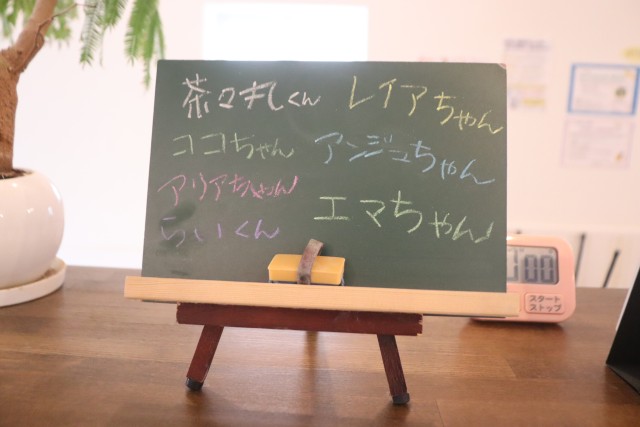 茶々丸くん
ココちゃん
アリアちゃん
らいくん
レイアちゃん
アンジュちゃん
エマちゃん
スタート
ストップ